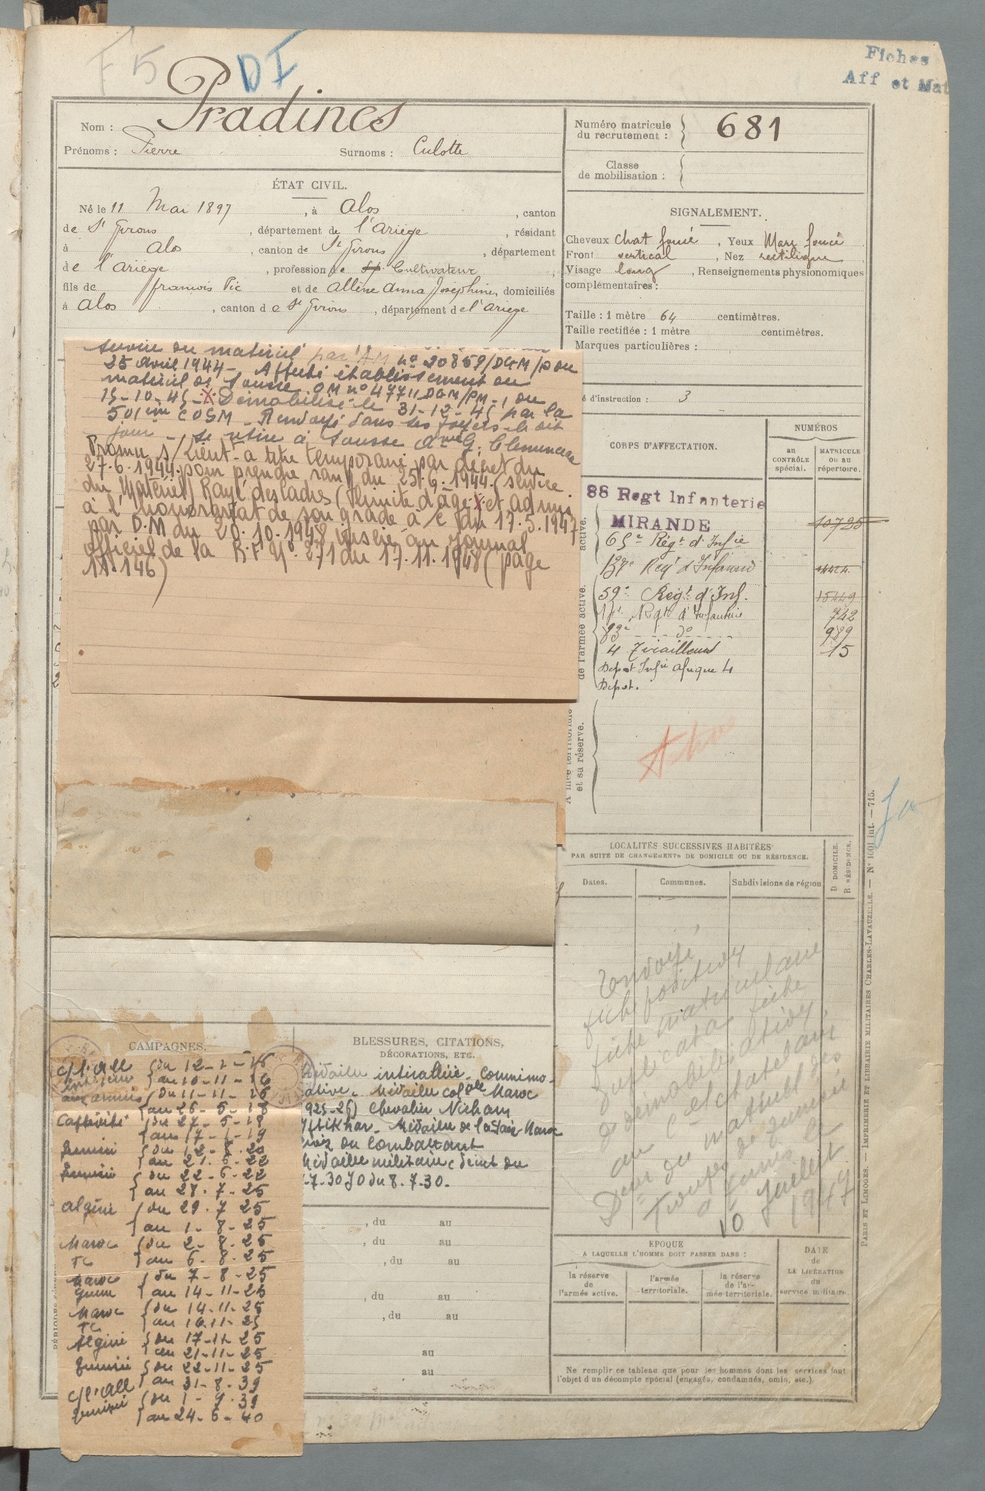 F5 DI
Fiches
Aff et Mat
Nom : Pradines
Prénoms : Pierre Surnoms : Culotte
Numéro matricule du recrutement : 681
Classe de mobilisation :
ÉTAT CIVIL.
Né le 11 Mai 1897, à Alos, canton
de St Girons, département de l'Ariège, résidant
à Alos, canton de St Girons, département
de l'ariège, profession de Cultivateur
fils de francois Pic et de Allène Anna Joséphine, domiciliés
à Alos, canton de St Girons, département de l'ariege
SIGNALEMENT.
Cheveux chat foncé, Yeux Marr foncé
Front vertical, Nez rectiligne
Visage long, Renseignements physionomiques
complémentaires :
Taille : 1 mètre 64 centimètres.
Taille rectifiée : 1 mètre centimètres.
Marques particulières :
é d'instruction : 3
service du matériel par no 20859/DGM/P du
25 Avril 1944 - Affecté établissement du
matériel de Sousse OM no 4771 DGM/PM-1 du
15-10-45 - Démobilisé le 31-12-45 par la
501eme COGM - Renvoyé dans les foyers le dit
jour - Se retire à Sousse Avue G. Clemenceau
Promu s/Lieut. a titre temporaire par décret du
27.6.1944 pour prendre rang du 25.6.1944 (service
du Matériel) Rayé des cadres (limite d'age) et admis
à l'honorariat de son grade à c/ du 17.5.1947
par D.M du 20.10.1948 insérée au Journal
officiel de la R.F. No 271 du 17.11.1948 (page
11.146)
CORPS D'AFFECTATION.
NUMÉROS
au CONTRÔLE spécial.
MATRICULE OU AU répertoire.
88 Regt Infanterie
MIRANDE 10725
65e Régt d'Infie
Regt d'Infanterie
59e Regt d'Inf. 15449
Regt d'Infanterie 742
83e do 989
4 Tirailleurs 15
Depot Infie Afrique 4
Depot.
de l'armée active.
et sa réserve.
LOCALITÉS SUCCESSIVES HABITÉES
PAR SUITE DE CHANGEMENTS DE DOMICILE OU DE RÉSIDENCE.
Dates. Communes. Subdivisions de région
D. DOMICILE.
R. RÉSIDENCE.
Envoyé
fiche position
fiche matriculaire
duplicata fiche
démobilisation
au C el chatelain
Deur du matériel des
Troupes de Tunisie
à Tunis le
10 Juillet 1947
CAMPAGNES.
c/l'All { du 12-1-16
intérieur { au 10-11-16
aux armées { du 11-11-16
au 26-5-18
Captivité { du 27-5-18
au 17-1-19
Tunisie { du 12-8-20
au 21-6-22
Tunisie { du 22-6-22
au 28-7-25
Algérie { du 29-7-25
au 1-8-25
Maroc { du 2-8-25
TC au 6-8-25
Maroc { du 7-8-25
Guerre au 14-11-25
Maroc { du 14-11-25
TC au 16-11-25
Algérie { du 17-11-25
au 21-11-25
Tunisie { du 22-11-25
au 31-8-39
c/l'All { du 1-9-39
Tunisie { au 24-6-40
BLESSURES, CITATIONS,
DÉCORATIONS, ETC.
Médaille interalliée. Commémo-
rative. Médaille colale Maroc
1925-26) Chevalier Nicham
Iftikhar. Médaille de la Paix Maroc
Croix du Combattant
Médaille militaire décret du
7-30 JO du 8.7.30.
, du au
, du au
, du au
, du au
, du au
au
au
ÉPOQUE
A LAQUELLE L'HOMME DOIT PASSER DANS :
la réserve de l'armée active.
l'armée territoriale.
la réserve de l'armée territoriale.
DATE
de
LA LIBÉRATION
du
service militaire.
Ne remplir ce tableau que pour les hommes dont les services font
l'objet d'un décompte spécial (engagés, condamnés, omis, etc.).
PARIS ET LIMOGES. — IMPRIMERIE ET LIBRAIRIE MILITAIRES CHARLES-LAVAUZELLE. — No 1001 int. — 715.